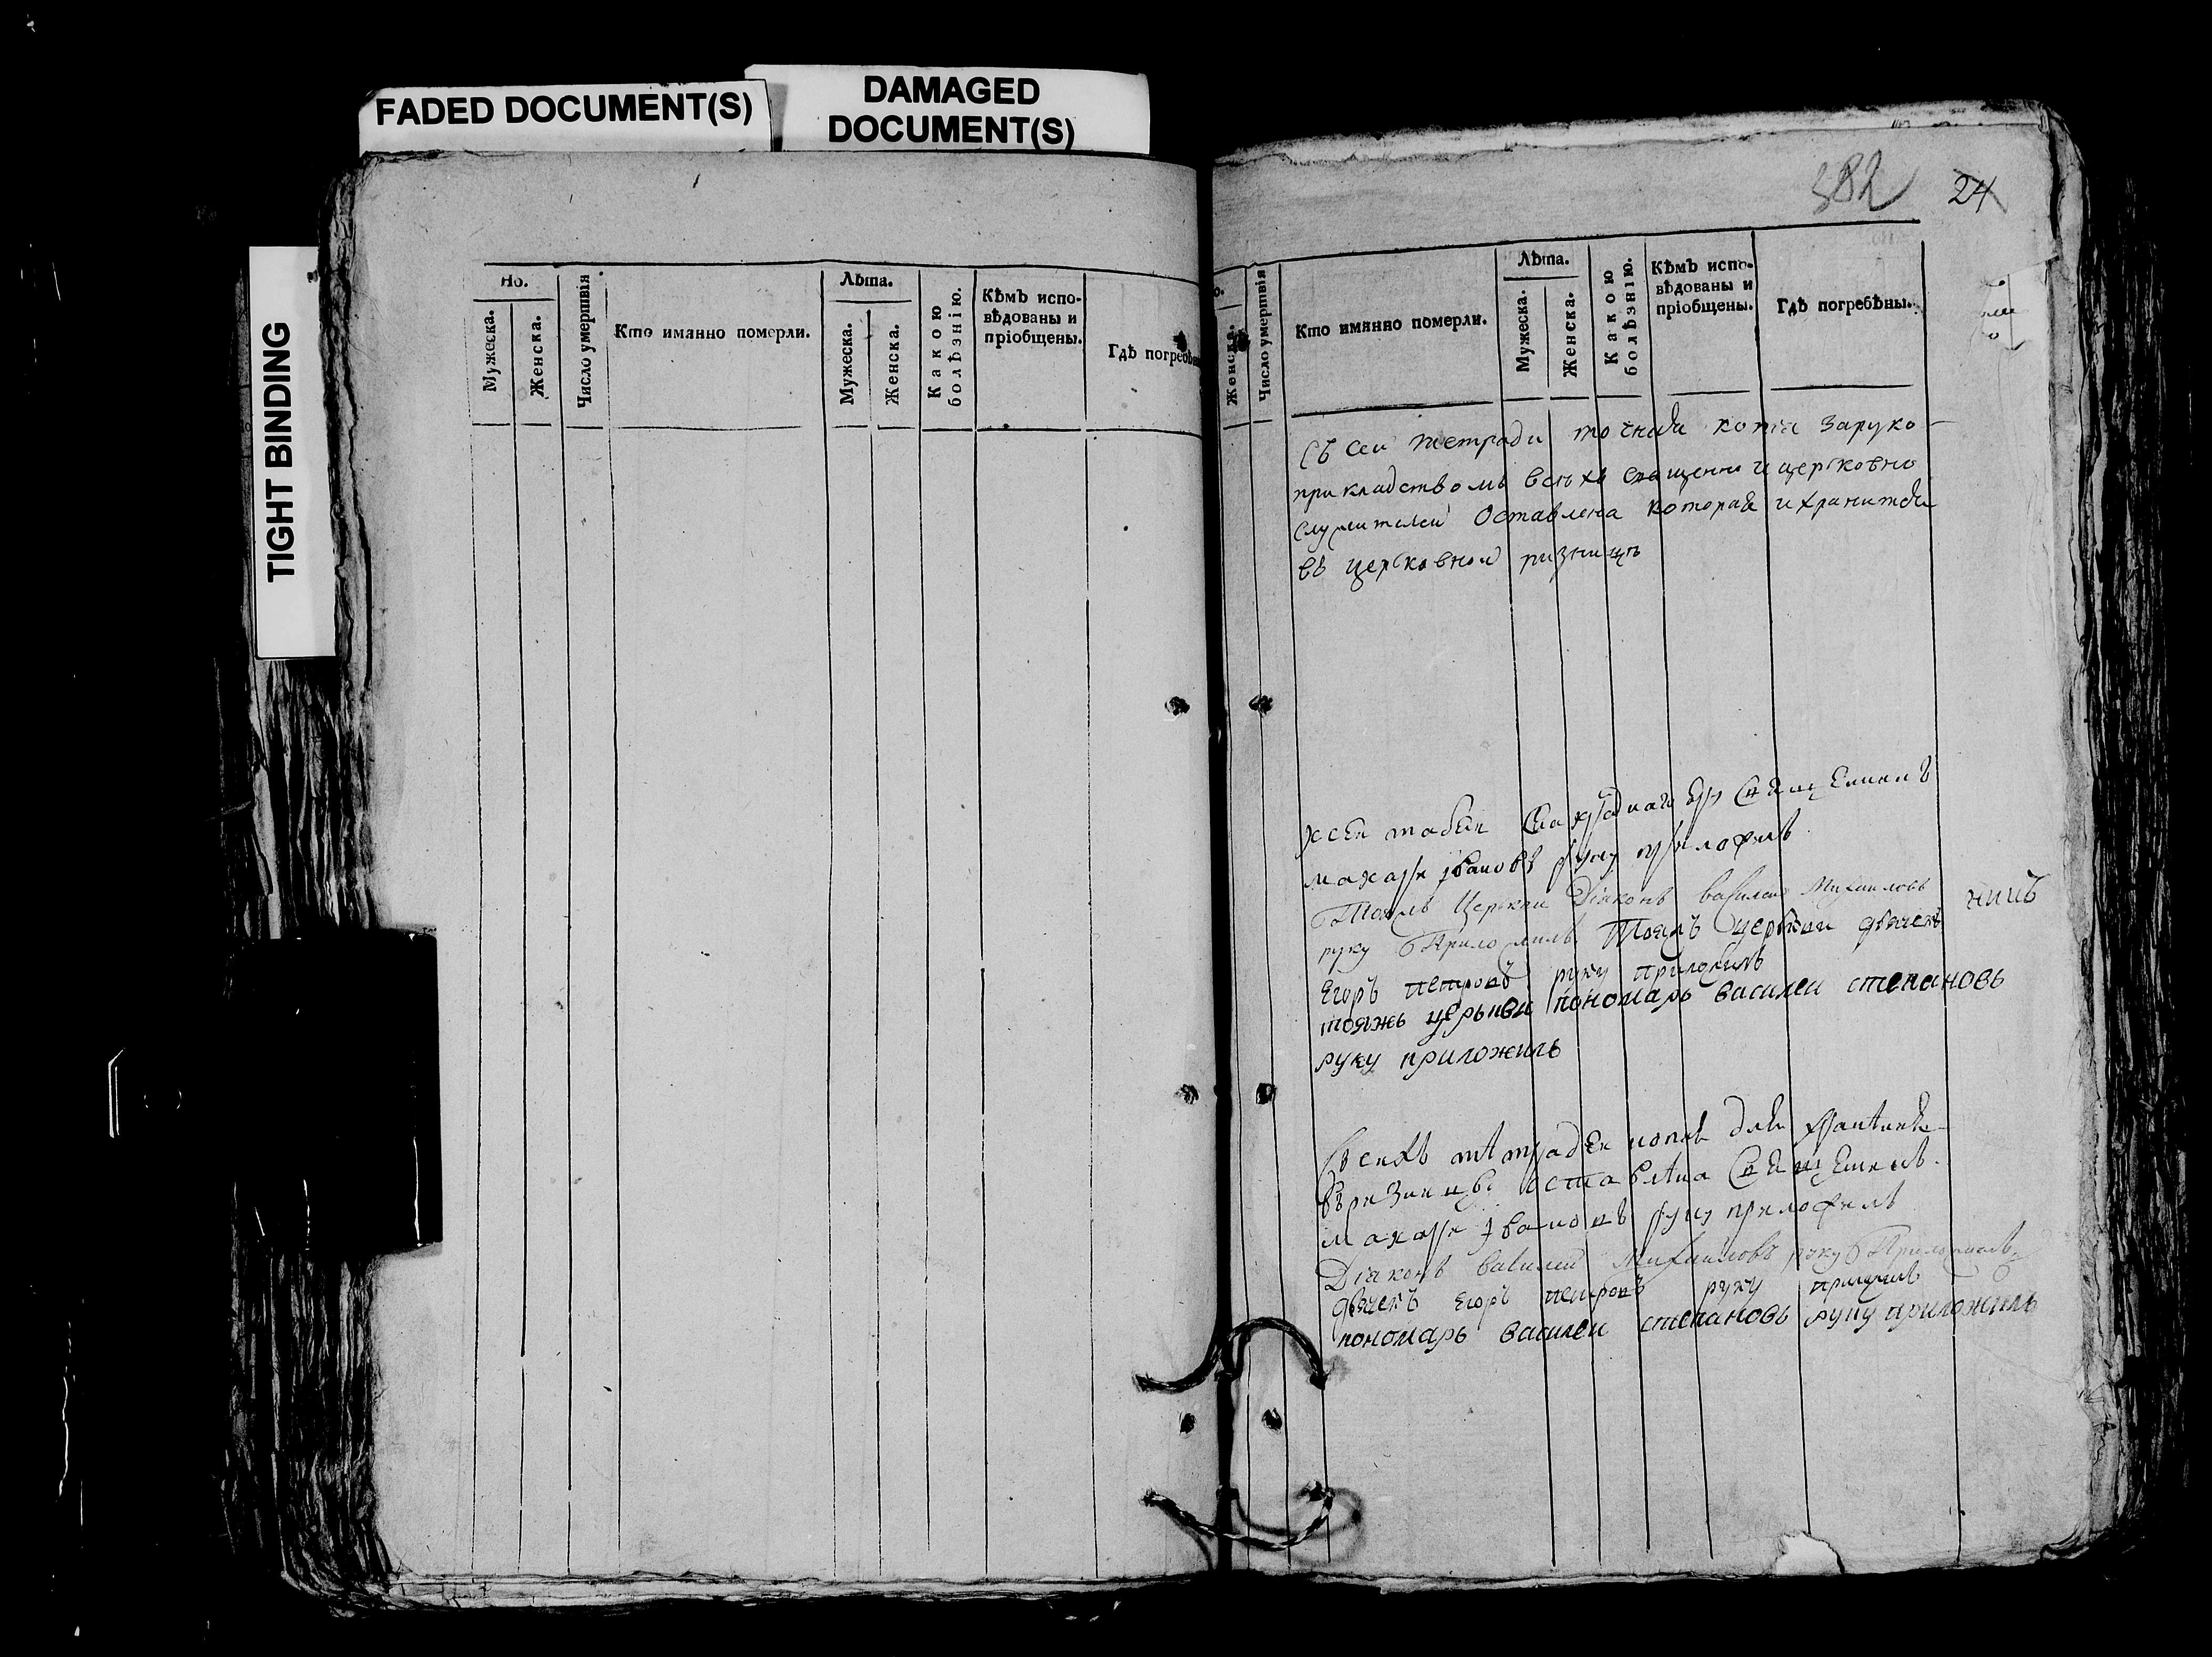 FADED DOCUMENT(S)
DAMAGED
DOCUMENT(S)
TIGHT BINDING
Но.
Мужеска.
Женска.
Число умертвія
Кто имянно померли.
Лѣта.
Мужеска.
Женска.
Какою
болѣзнію.
Кѣмъ испо-
вѣдованы и
пріобщены.
Гдѣ погребены
382
24
о.
Женска.
Число умертвія
Кто имянно померли.
Лѣта.
Мужеска.
Женска.
Какою
болѣзнію.
Кѣмъ испо-
вѣдованы и
пріобщены.
Гдѣ погребѣны.
Съ сеи тетради точная копїя заруко-
прикладствомъ всѣхъ священно и церковно
служителеи оставлена которая и хранится
въ церковной ризницѣ
ксеи священникъ
макаръ івановъ руку приложилъ
Тояжъ Церкви Діяконъ василеи Михаиловъ
руку Приложилъ Тояжъ церкви дьячекъ
Егоръ петровъ руку приложилъ
тояжъ церькви пономарь василеи степановь
руку приложилъ
копїя для храненїя
въ ризницѣ оставлена священникъ
макаръ івановъ руку приложилъ
Діяконъ василеи Михаиловъ руку Приложилъ
дьячекъ Егоръ петровъ руку приложилъ
пономарь василеи степановь руку приложилъ